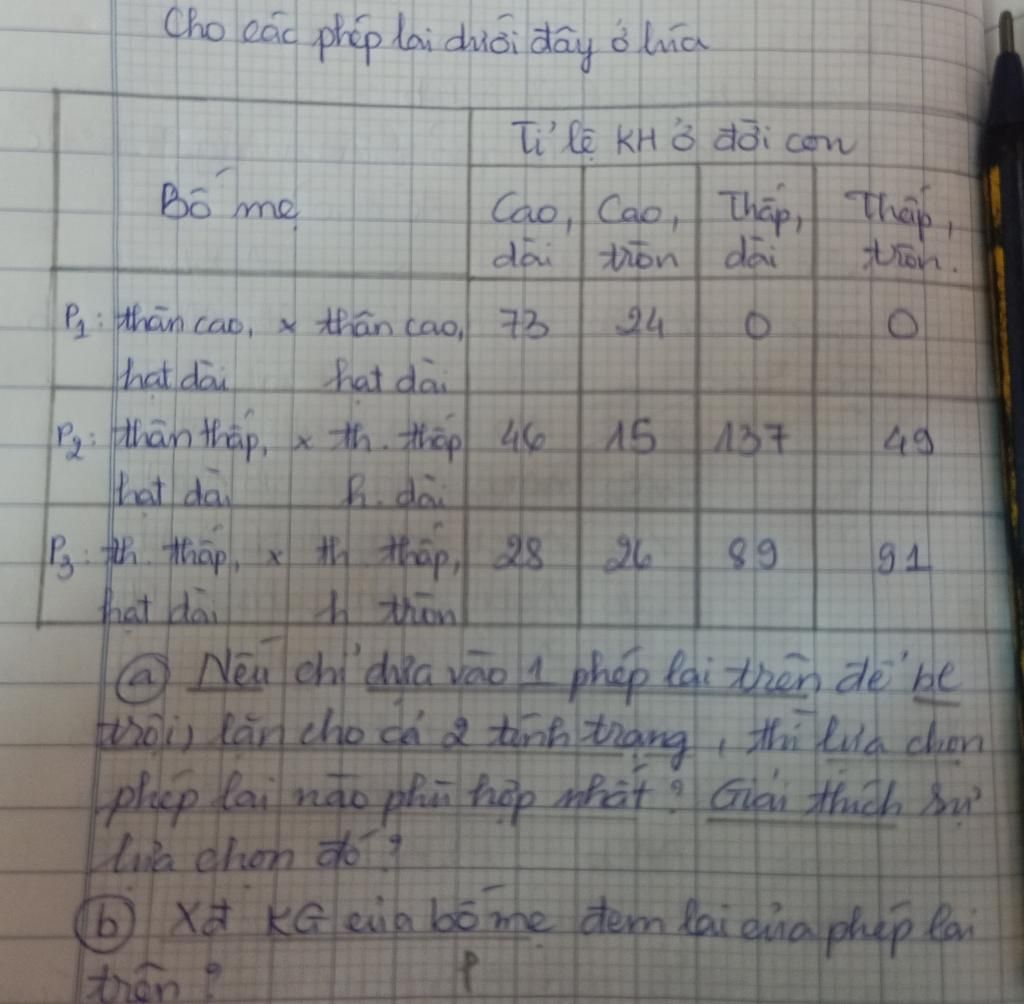 Cho các phép lai dưới đây ở lúa
Bố mẹ
Tỉ lệ KH ở đời con
Cao, dài
Cao, tròn
Thấp, dài
Thấp, tròn.
P1: thân cao, x thân cao, 73 24 0 0
hạt dài hạt dài
P2: thân thấp, x th. thấp 46 15 137 49
hạt dài h. dài
P3: th. thấp, x th thấp, 28 26 89 91
hạt dài h tròn
a Nếu chỉ dựa vào 1 phép lai trên để
trội, lặn cho cả 2 tính trạng, thì lựa chọn
phép lai nào phù hợp nhất? Giải thích sự
lựa chọn đó?
b Xđ KG của bố mẹ đem lai của phép lai
trên?